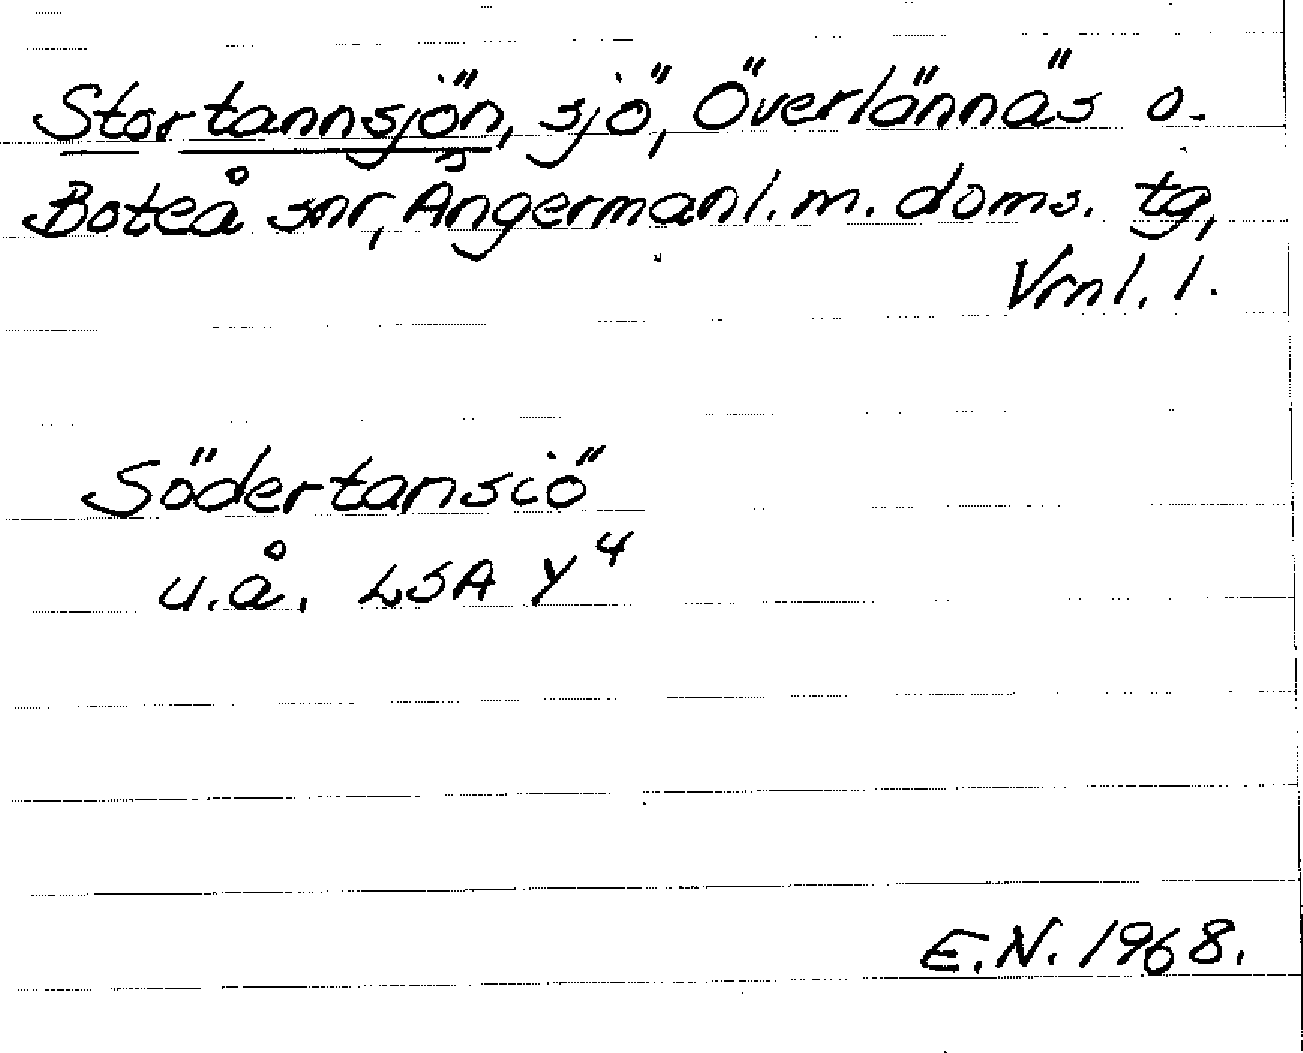 Stortannsjön, sjö, Överlännäs o.
Boteå snr, Ångermanl. m. doms. tg,
Vrnl. l.
Södertansiö
u.å. LSA Y4
E.N. 1968.